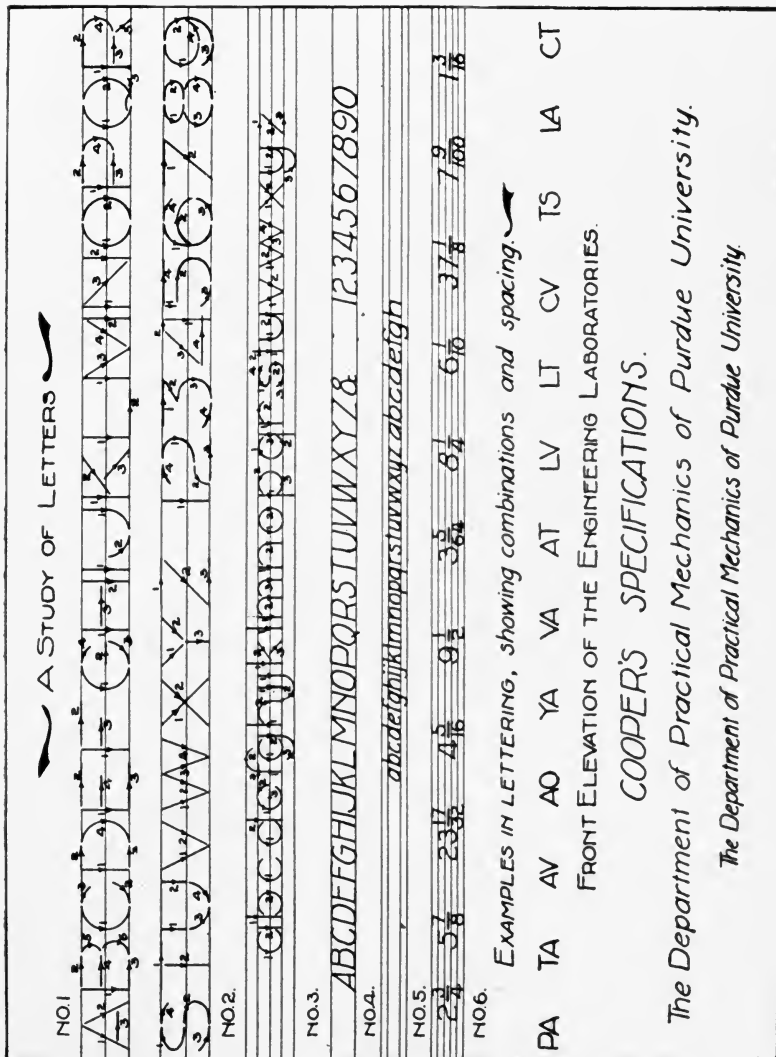 A STUDY OF LETTERS
NO.1
A B C D E F G H I J K L M N O P Q R
S T U V W X Y Z 1 2 3 4 5 6 7 8 9
NO.2.
a b c d e f g h i j k l m n o p q r s t u v w x y z
NO.3.
ABCDEFGHIJKLMNOPQRSTUVWXYZ& 1234567890
NO.4.
abcdefghijklmnopqrstuvwxyz abcdefgh
NO.5.
2 3/4 5 7/8 23 17/32 4 5/16 9 1/2 3 5/64 8 1/4 6 1/10 37 1/8 7 9/100 1 3/16
NO.6.
EXAMPLES IN LETTERING, showing combinations and spacing.
PA TA AV AO YA VA AT LV LT CV TS LA CT
FRONT ELEVATION OF THE ENGINEERING LABORATORIES.
COOPER'S SPECIFICATIONS.
The Department of Practical Mechanics of Purdue University.
The Department of Practical Mechanics of Purdue University.